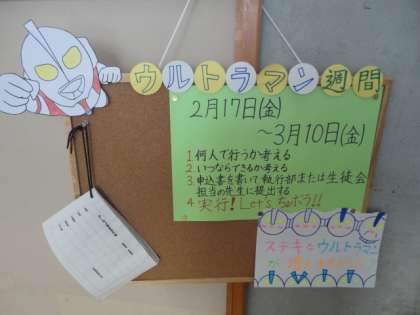 ウルトラマン週間
2月17日(金)
～3月10日(金)
1.何人で行うか考える
2.いつならできるか考える
3.申込書を書いて執行部または生徒会
担当の先生に提出する
4.実行! Let's ちょボラ!!
ステキなウルトラマン
が